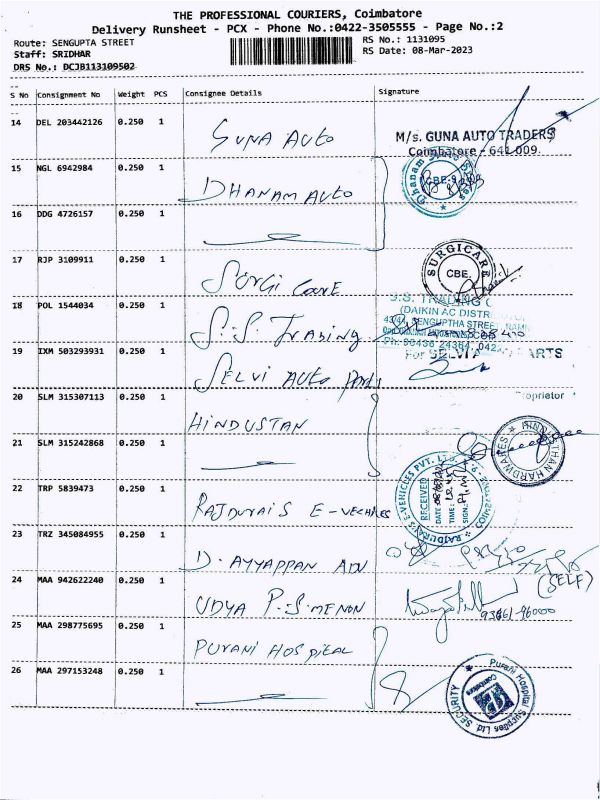 THE PROFESSIONAL COURIERS, Coimbatore
Delivery Runsheet - PCX - Phone No.:0422-3505555 - Page No.:2
Route: SENGUPTA STREET
RS No.: 1131095
Staff: SRIDHAR
RS Date: 08-Mar-2023
DRS No.: DCJB113109502
S No Consignment No Weight PCS Consignee Details Signature
14 DEL 203442126 0.250 1 GUNA AUTO
M/s. GUNA AUTO TRADERS
Coimbatore - 641 009.
15 NGL 6942984 0.250 1 DHANAM AUTO
Dhanam Auto Stores
CBE-9
16 DDG 4726157 0.250 1
17 RJP 3109911 0.250 1 SURGI CARE
SURGICARE
CBE.
18 POL 1544034 0.250 1 S.S. TRADING
S.S. TRADING
(DAIKIN AC DISTR
SENGUPTHA STREET,
19 IXM 503293931 0.250 1 SELVI AUTO PARTS
For SELVI A ARTS
20 SLM 315307113 0.250 1 HINDUSTAN
Proprietor
21 SLM 315242868 0.250 1
HINDUSTHAN HARDWARES
22 TRP 5839473 0.250 1 RAJDURAIS E-VECHILES
RAJDURAI'S E-VEHICLES PVT. LTD.
RECEIVED
DATE
TIME:
SIGN:
23 TRZ 345084955 0.250 1 D. AYYAPPAN ADN
24 MAA 942622240 0.250 1 UDYA P.S. MENON
(SELF)
93661-96000
25 MAA 298775695 0.250 1 PURANI HOSPITAL
26 MAA 297153248 0.250 1
Purani Hospital Supplies Ltd.
SECURITY
Coimbatore